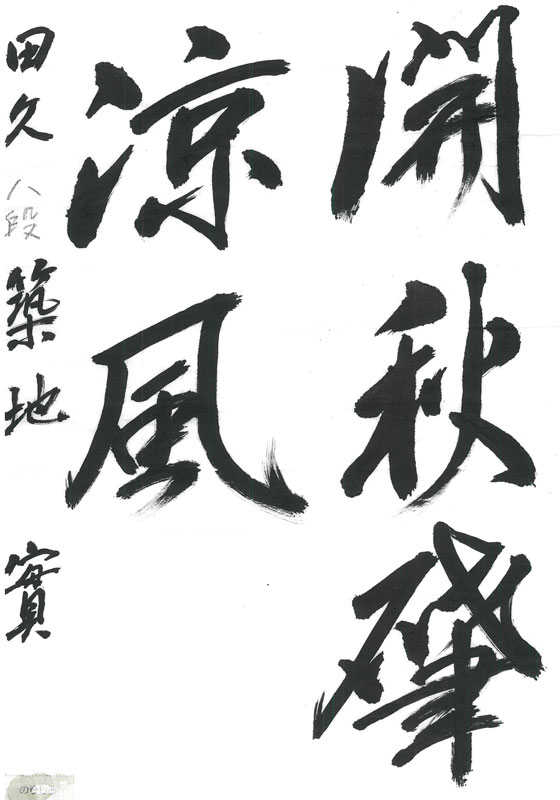 開秋肇
涼風
田久 八段 築地 實